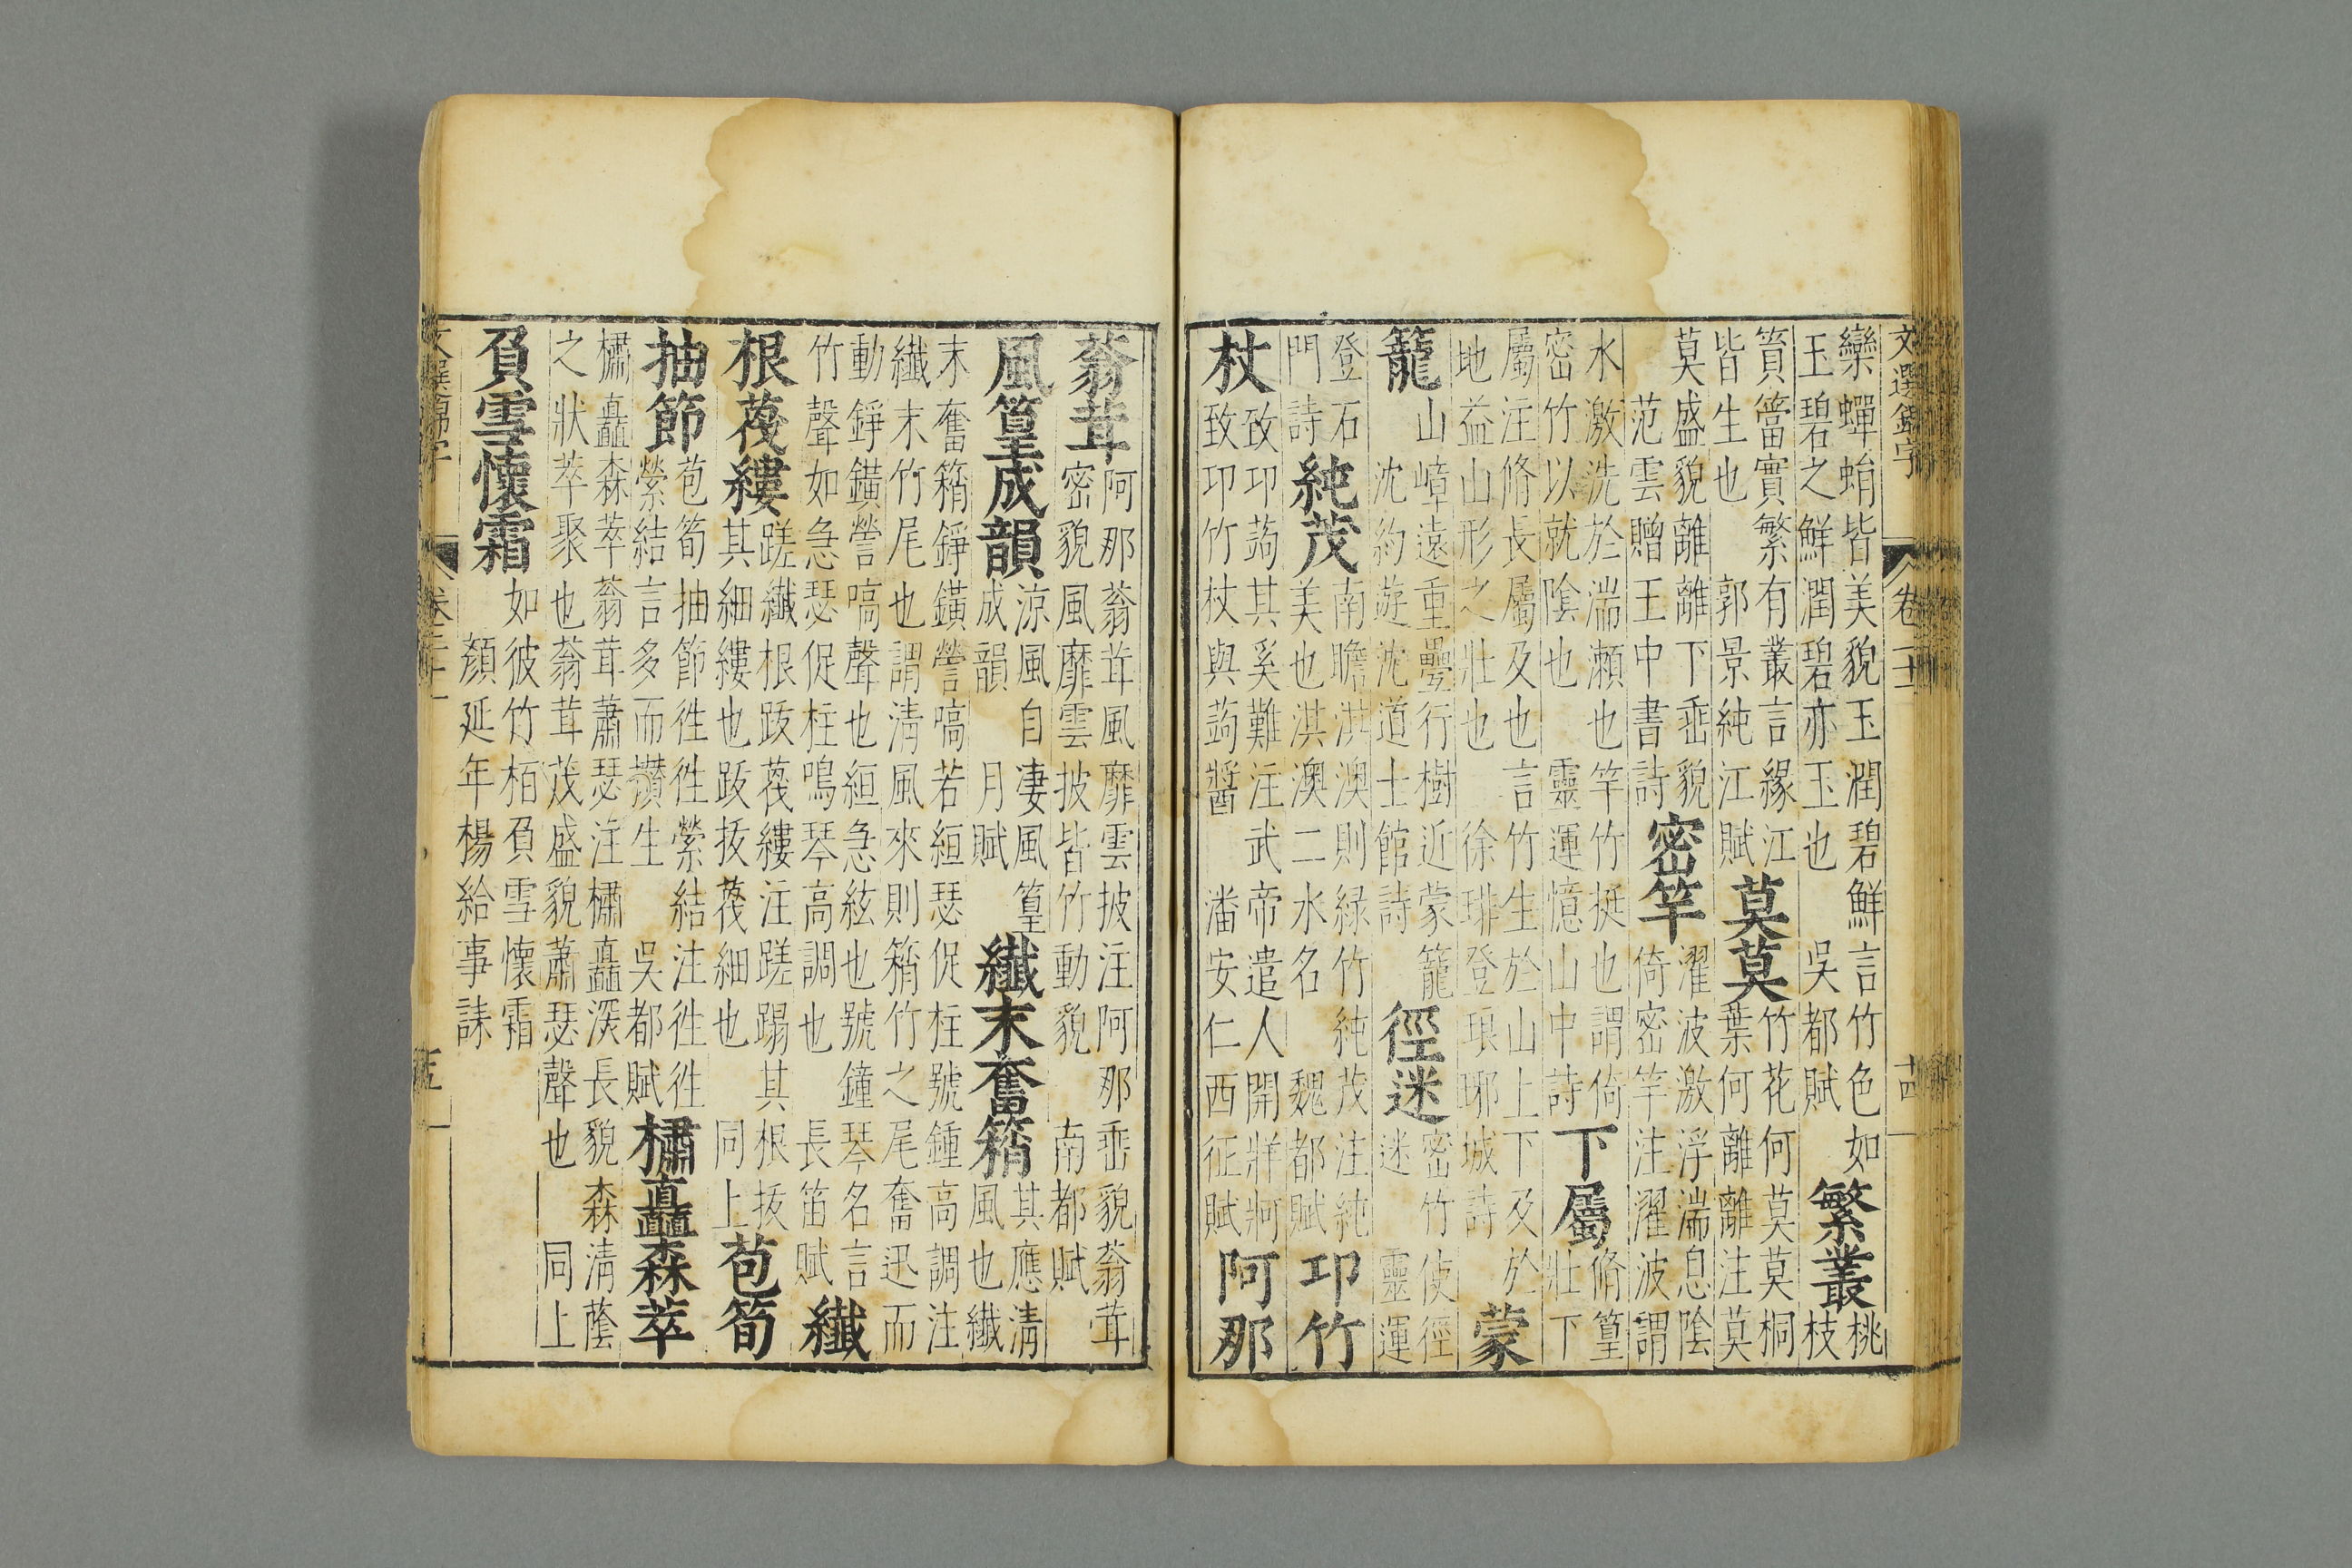 文選錦字 卷二十 十四
欒蟬蜎皆美貌玉潤碧鮮言竹色如
玉碧之鮮潤碧亦玉也 吳都賦
繁叢
桃
枝
篔簹實繁有叢言緣江
皆生也 郭景純江賦
莫莫
竹花何莫莫桐
葉何離離注莫
莫盛貌離離下垂貌
范雲贈王中書詩
密竿
濯波激浮湍息陰
倚密竿注濯波謂
水激洗於湍瀨也竿竹挺也謂倚
密竹以就陰也 靈運憶山中詩
下屬
脩篁
壯下
屬注脩長屬及也言竹生於山上下及於
地益山形之壯也 徐琲登琅琊城詩
蒙
籠
山嶂遠重疊行樹近蒙籠
沈約遊沈道士館詩
徑迷
密竹使徑
迷 靈運
登石
門詩
純茂
南瞻淇澳則綠竹純茂注純
美也淇澳二水名 魏都賦
卭竹
杖
致卭蒟其奚難注武帝遣人開牂牁
致卭竹杖與蒟醬 潘安仁西征賦
阿那
蓊茸
阿那蓊茸風靡雲披注阿那垂貌蓊茸
密貌風靡雲披皆竹動貌 南都賦
風篁成韻
涼風自凄風篁
成韻 月賦
纖末奮箾
其應清
風也纖
末奮箾錚鐄謍嗃若絙瑟促柱號鍾高調注
纖末竹尾也謂清風來則箾竹之尾奮迅而
動錚鐄謍嗃聲也絙急絃也號鐘琴名言
竹聲如急瑟促柱鳴琴高調也 長笛賦
纖
根茷縷
蹉纖根跋茷縷注蹉蹋其根抜
其細縷也跋抜茷細也 同上
苞筍
抽節
苞筍抽節徃徃縈結注徃徃
縈結言多而攢生 吳都賦
橚矗森萃
橚矗森萃蓊茸蕭瑟注橚矗深長貌森清蔭
之狀萃聚也蓊茸茂盛貌蕭瑟聲也 同上
負雪懷霜
如彼竹栢負雪懷霜
顏延年楊給事誄
文選錦字 卷二十 五